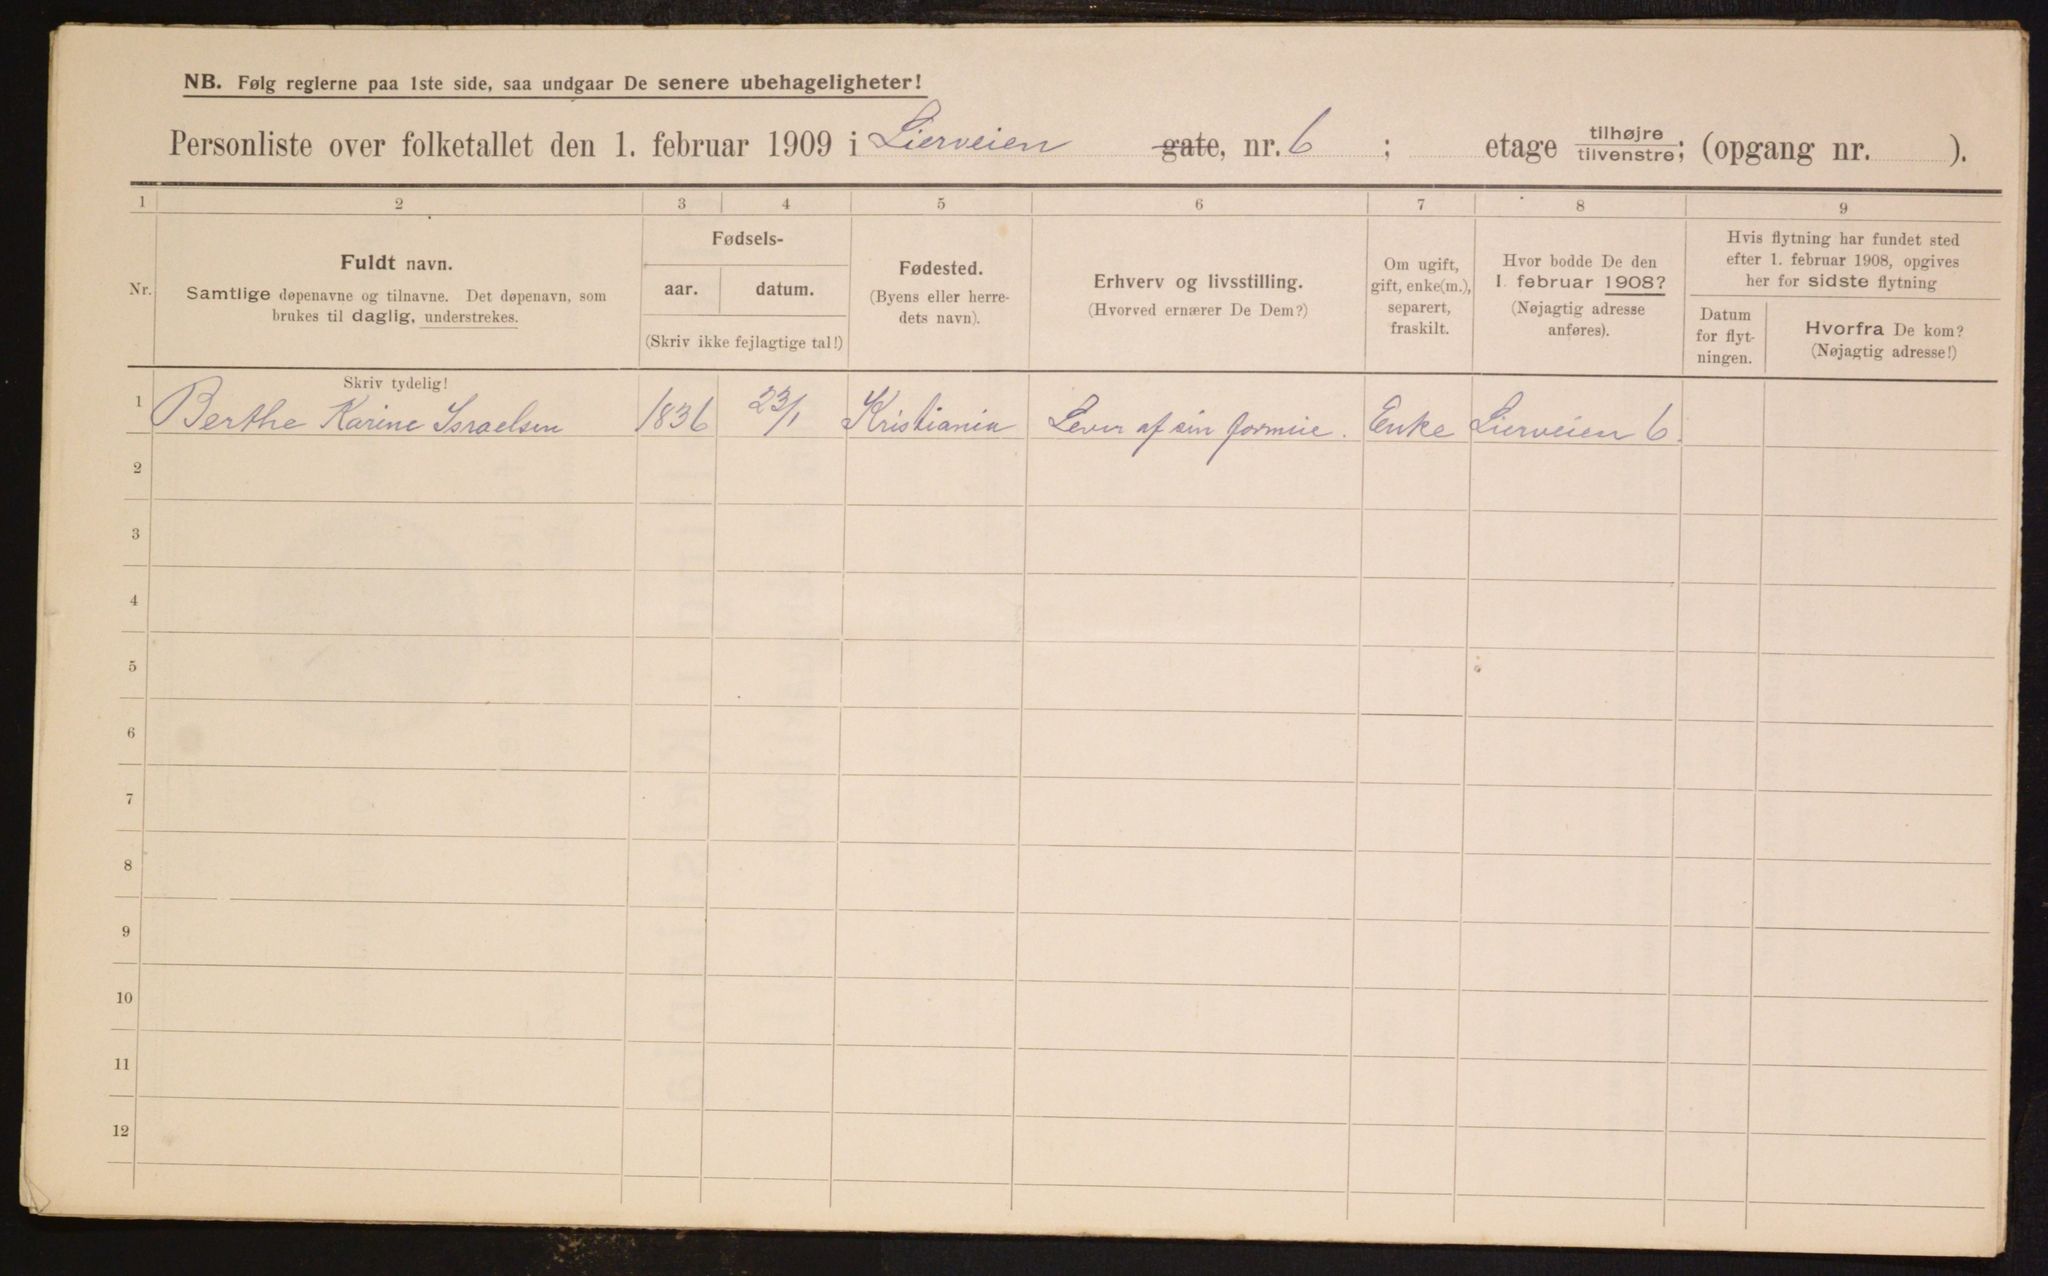 NB. Følg reglerne paa 1ste side, saa undgaar De senere ubehageligheter!
Personliste over folketallet den 1. februar 1909 i Lierveien gate, nr. 6 ; etage tilhøjre tilvenstre; (opgang nr. ).
1 2 3 4 5 6 7 8 9
Nr.
Fuldt navn.
Samtlige døpenavne og tilnavne. Det døpenavn, som
brukes til daglig, understrekes.
Fødsels-
aar. datum.
(Skriv ikke fejlagtige tal!)
Fødested.
(Byens eller herre-
dets navn).
Erhverv og livsstilling.
(Hvorved ernærer De Dem?)
Om ugift,
gift, enke(m.),
separert,
fraskilt.
Hvor bodde De den
1. februar 1908?
(Nøjagtig adresse
anføres).
Hvis flytning har fundet sted
efter 1. februar 1908, opgives
her for sidste flytning
Datum
for flyt-
ningen.
Hvorfra De kom?
(Nøjagtig adresse!)
Skriv tydelig!
1 Berthe Karine Israelsen 1836 23/1 Kristiania Lever af sin formue. Enke Lierveien 6.
2
3
4
5
6
7
8
9
10
11
12